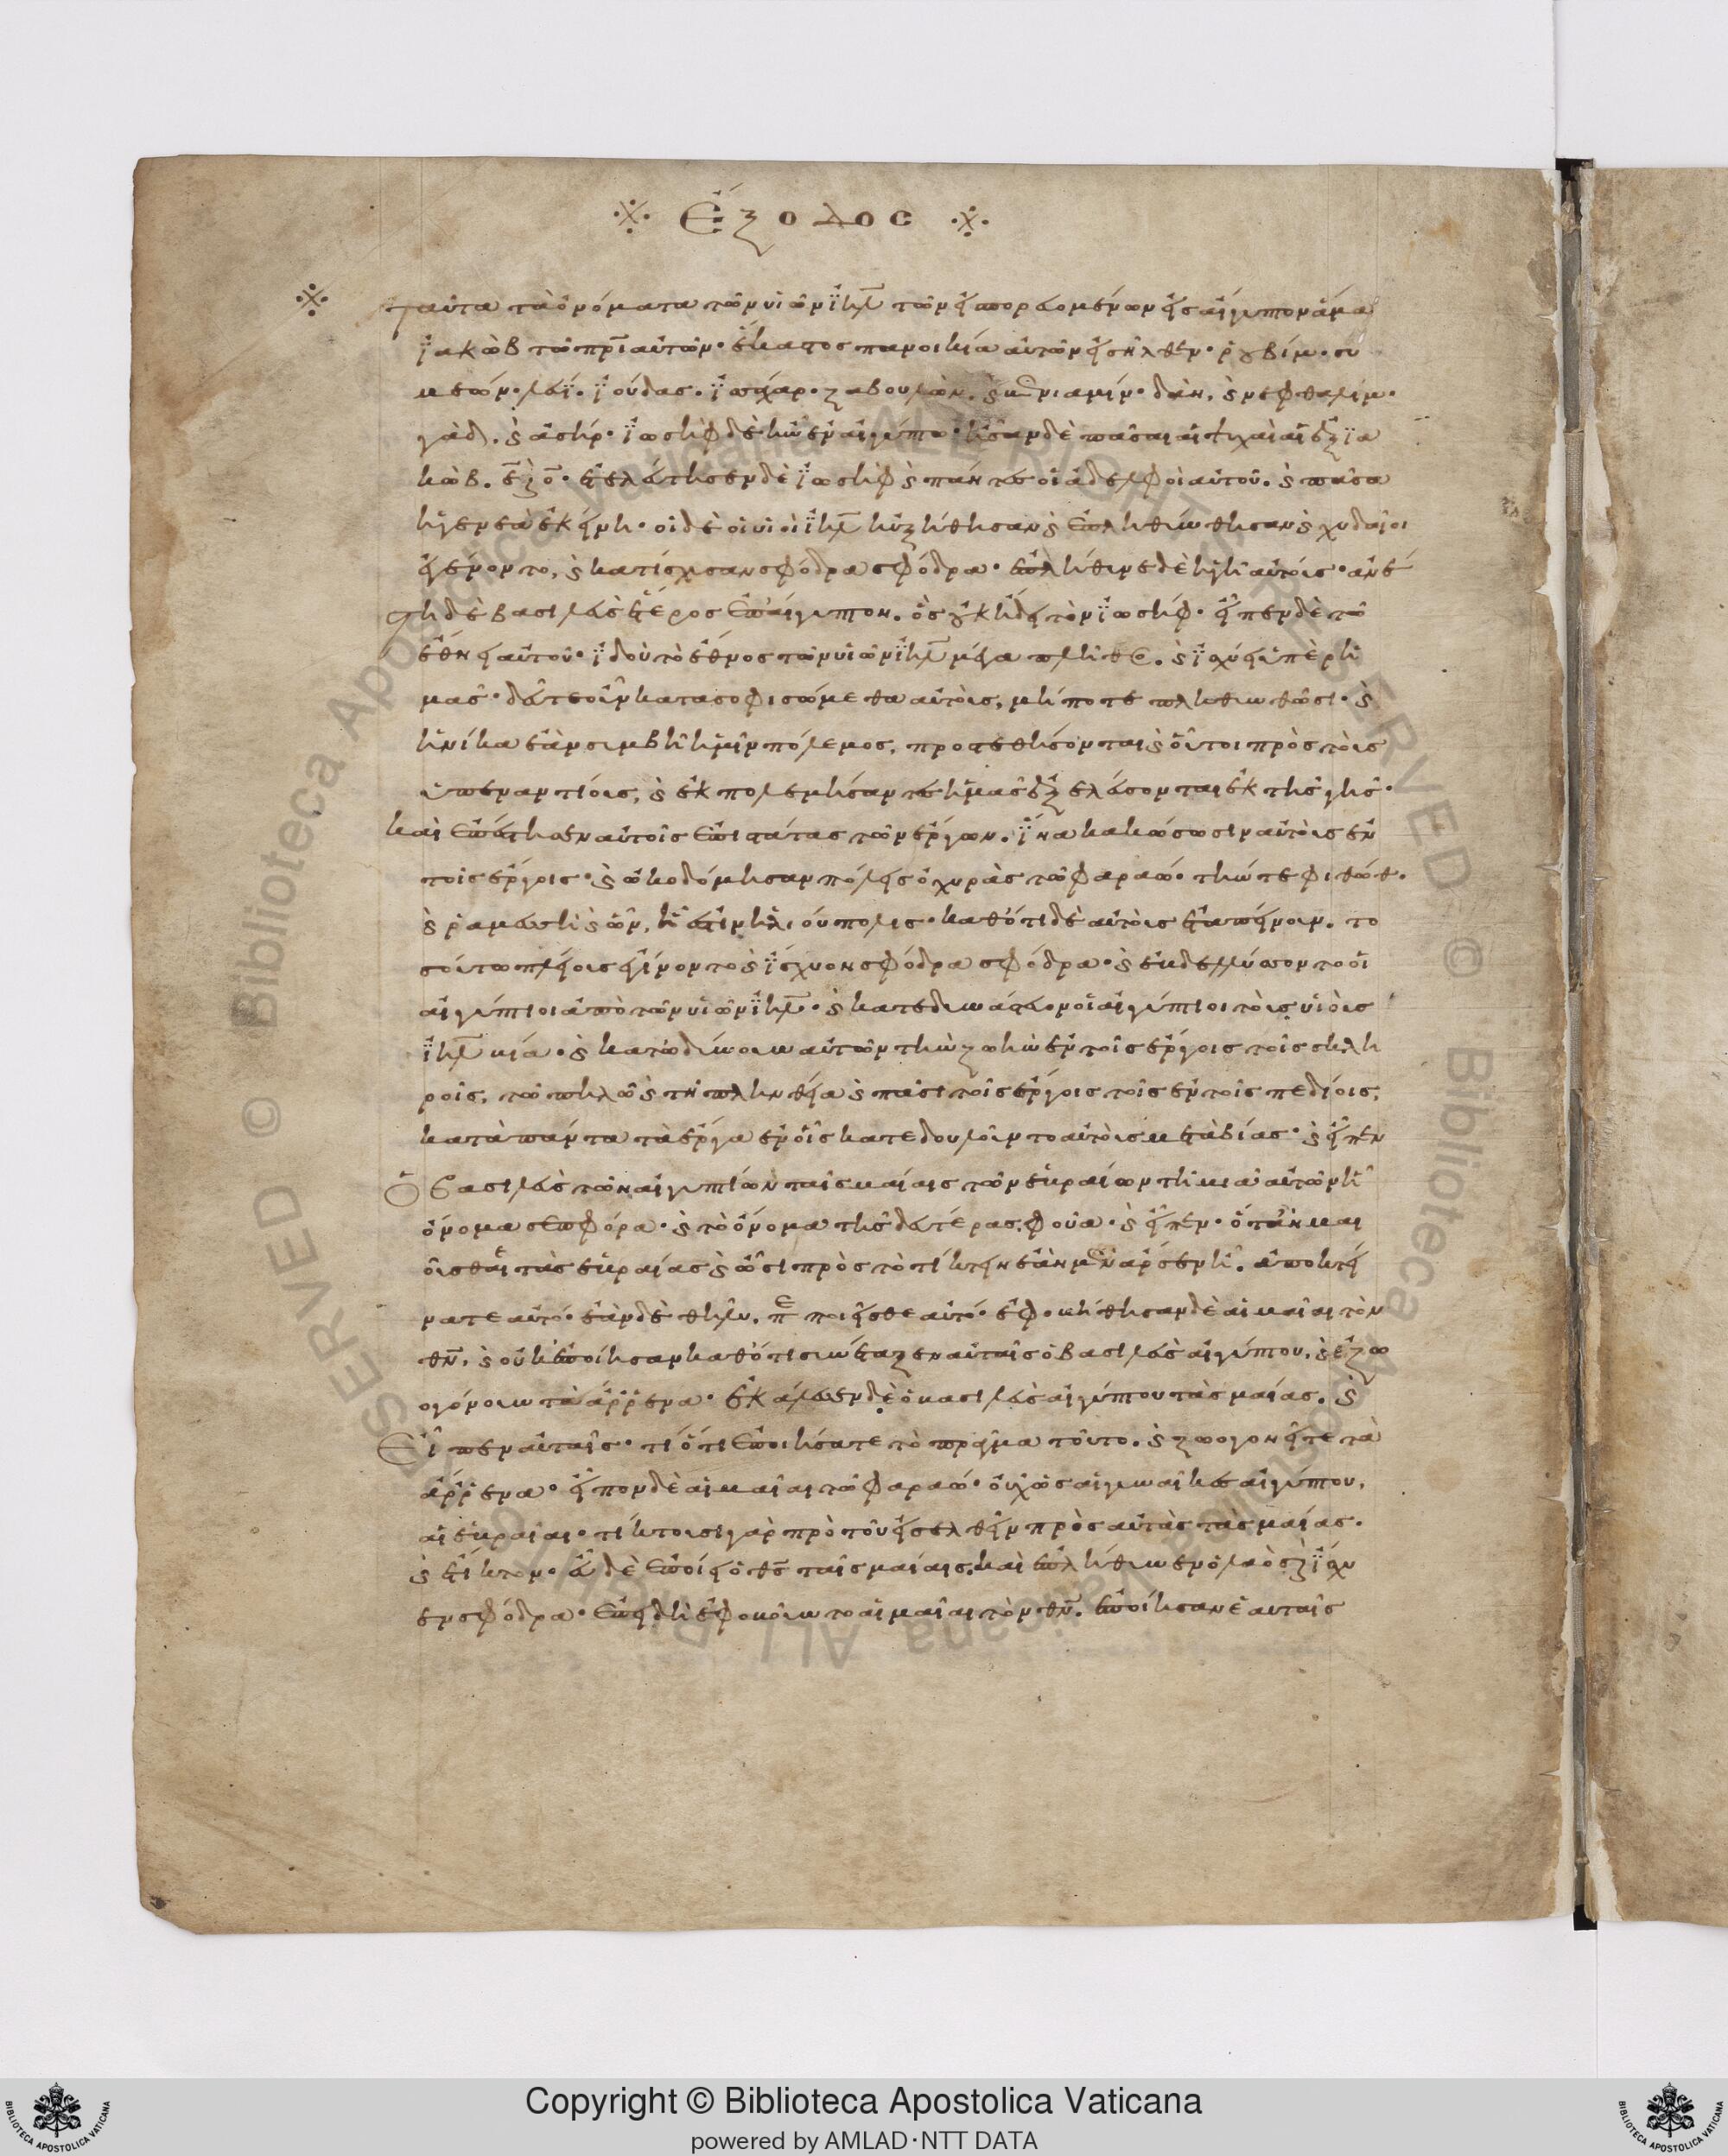 ※ Ἔξοδος ※
※ ταῦτα τὰ ὀνόματα τῶν υἱῶν ϊηλ τῶν εἰσπορευομένων εἰς αἴγυπτον ἅμα
ϊακὼβ τῶ πρι αὐτῶν· ἕκαστος πανοικία αὐτῶν εἰσῆλθεν· ρουβίμ· συ
μεών· λευΐ. ϊούδας. ϊσάχαρ· ζαβουλὼν. καὶ βενιαμίν· δὰν. καὶ νεφθαλίμ·
γὰδ. καὶ ἀσήρ· ϊωσὴφ δὲ ἦν ἐν αἰγύπτω· ἦσαν δὲ πᾶσαι αἱ ψυχαὶ αἱ ἐξ ϊα
κὼβ. ε καὶ ο· ἐτελεύτησεν δὲ ϊωσὴφ καὶ πάντες οἱ ἀδελφοὶ αὐτοῦ. καὶ πᾶσα
ἡ γενεὰ ἐκείνη· οἱ δὲ οἱ υἱοὶ ϊηλ ηὐξήθησαν καὶ ἐπληθύνθησαν καὶ χυδαῖοι
ἐγένοντο, καὶ κατίσχυσαν σφόδρα σφόδρα· ἐπλήθυνε δὲ ἡ γῆ αὐτοὺς· ἀνέ
στη δὲ βασιλεὺς ἕτερος ἐπ' αἴγυπτον. ὃς οὐκ ἤδει τὸν ϊωσήφ· εἶπεν δὲ τῶ
ἔθνει αὐτοῦ· ϊδοὺ τὸ ἔθνος τῶν υἱῶν ϊηλ μέγα πλῆθος. καὶ ϊσχύει ὑπὲρ ἡ
μᾶς· δεῦτε οὖν κατασοφισώμεθα αὐτοὺς, μήποτε πληθυνθῶσι· καὶ
ἡνίκα ἐὰν συμβῆ ἡμῖν πόλεμος, προστεθήσονται καὶ οὗτοι πρὸς τοὺς
ὑπεναντίους, καὶ ἐκπολεμήσαντες ἡμᾶς ἐξελεύσονται ἐκ τῆς γῆς·
καὶ ἐπέστησεν αὐτοῖς ἐπιστάτας τῶν ἔργων. ϊνα κακώσωσιν αὐτοὺς ἐν
τοῖς ἔργοις· καὶ ὠκοδόμησαν πόλεις ὀχυρὰς τῶ φαραώ· τήν τε φιθώθ.
καὶ ῥαμεσσὴ καὶ ὤν, ἥ ἐστιν ἡλιούπολις· καθότι δὲ αὐτοὺς ἐταπείνουν. το
σούτω πλείους ἐγίνοντο καὶ ϊσχυον σφόδρα σφόδρα· καὶ ἐβδελύσσοντο οἱ
αἰγύπτιοι ἀπὸ τῶν υἱῶν ϊηλ· καὶ κατεδυνάστευον οἱ αἰγύπτιοι τοὺς υἱοὺς
ϊηλ βία· καὶ κατωδύνουν αὐτῶν τὴν ζωὴν ἐν τοῖς ἔργοις τοῖς σκλη
ροῖς, τῶ πηλῶ καὶ τῆ πλινθεία καὶ πᾶσι τοῖς ἔργοις τοῖς ἐν τοῖς πεδίοις,
κατὰ πάντα τὰ ἔργα ἐν οἷς κατεδουλοῦντο αὐτοὺς μετὰ βίας· καὶ εἶπεν
ὁ βασιλεὺς τῶν αἰγυπτίων ταῖς μαίαις τῶν ἑβραίων τῆ μιᾶ αὐτῶν ἧ
ὄνομα σεπφόρα· καὶ τὸ ὄνομα τῆς δευτέρας, φουά· καὶ εἶπεν· ὅταν μαι
οῦσθαι τὰς ἑβραίας καὶ ὦσι πρὸς τὸ τίκτειν ἐὰν μὲν ἄρσεν ἦ. ἀποκτεί
νατε αὐτό· ἐὰν δὲ θῆλυ. περιποιεῖσθε αὐτό· ἐφοβήθησαν δὲ αἱ μαῖαι τὸν
θν. καὶ οὐκ ἐποίησαν καθότι συνέταξεν αὐταῖς ὁ βασιλεὺς αἰγύπτου. καὶ ἐζω
ογόνουν τὰ ἄρρενα· ἐκάλεσεν δὲ ὁ βασιλεὺς αἰγύπτου τὰς μαίας. καὶ
εἶπεν αὐταῖς· τί ὅτι ἐποιήσατε τὸ πρᾶγμα τοῦτο. καὶ ζωογονεῖτε τὰ
ἄρρενα· εἶπον δὲ αἱ μαῖαι τῶ φαραώ· οὐχ ὡς αἱ γυναῖκες αἰγύπτου,
αἱ ἑβραῖαι· τίκτουσι γὰρ πρὸ τοῦ εἰσελθεῖν πρὸς αὐτὰς τὰς μαίας·
καὶ ἔτικτον· εὖ δὲ ἐποίει ὁ θς ταῖς μαίαις, καὶ ἐπλήθυνεν ὁ λαὸς καὶ ϊσχυ
εν σφόδρα· ἐπειδὴ ἐφοβοῦντο αἱ μαῖαι τὸν θν. ἐποίησαν ἑαυταῖς
Copyright © Biblioteca Apostolica Vaticana
powered by AMLAD·NTT DATA